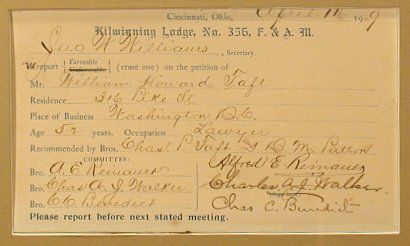 Cincinnati, Ohio, April 14 1909
Kilwinning Lodge, No. 356, F. & A. M.
Geo W Williams, Secretary.
We report { Favorable Unfavorable } (erase one) on the petition of
Mr. William Howard Taft
Residence 316 Pike St
Place of Business Washington D.C.
Age 52 years. Occupation Lawyer
Recommended by Bros. Chas P. Taft and D. M. Patton
COMMITTEE:
Bro. A. E. Remauer Alfred E. Remauer
Bro. Chas A. J. Walker Charles A. J. Walker
Bro. C C Benedict Chas C. Benedict
Please report before next stated meeting.